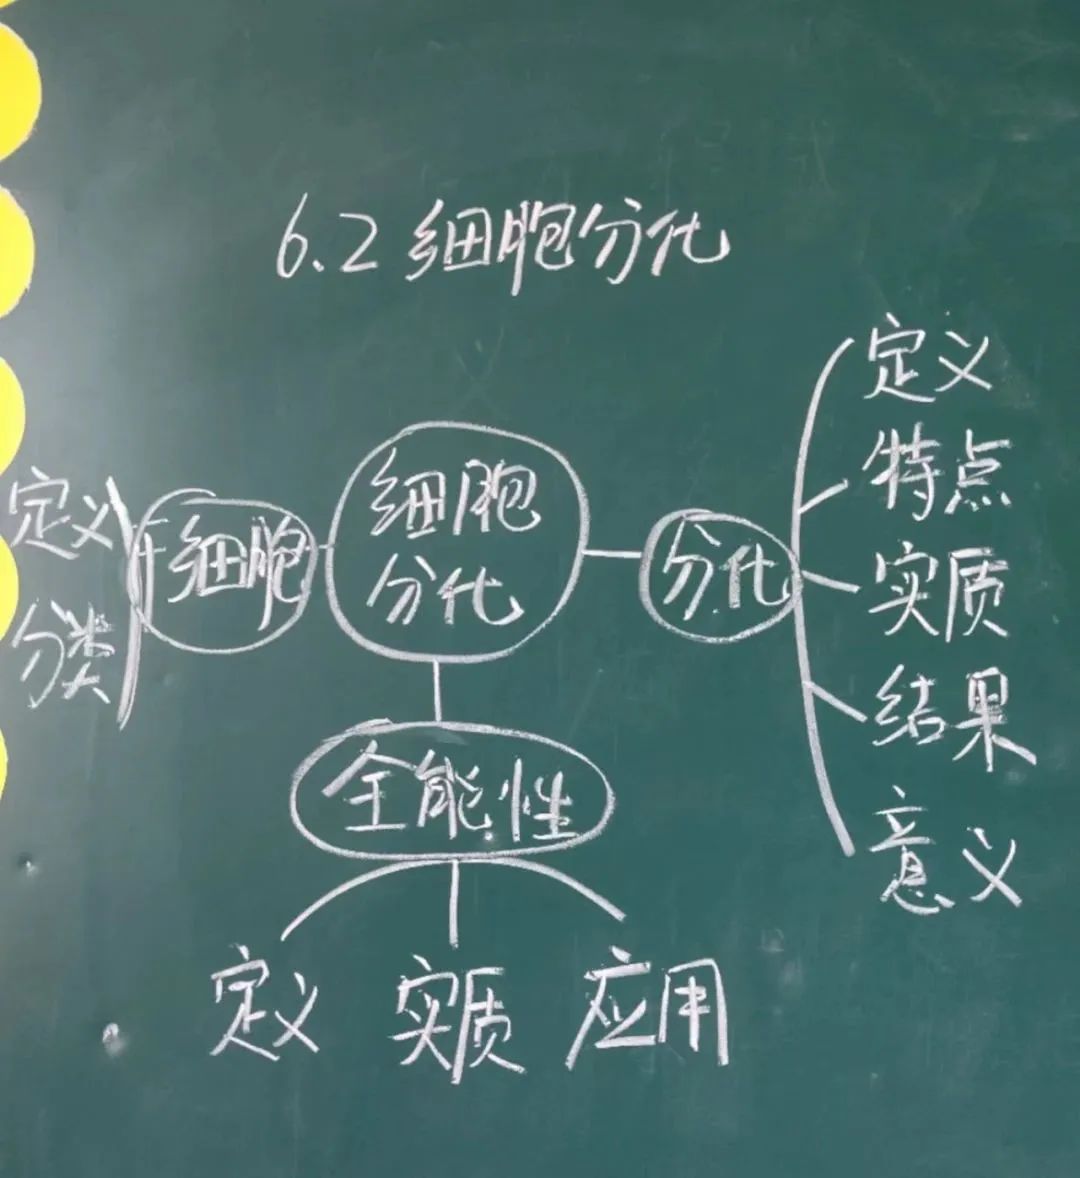 6.2 细胞分化
细胞
分化
干细胞
定义
分类
分化
定义
特点
实质
结果
意义
全能性
定义 实质 应用